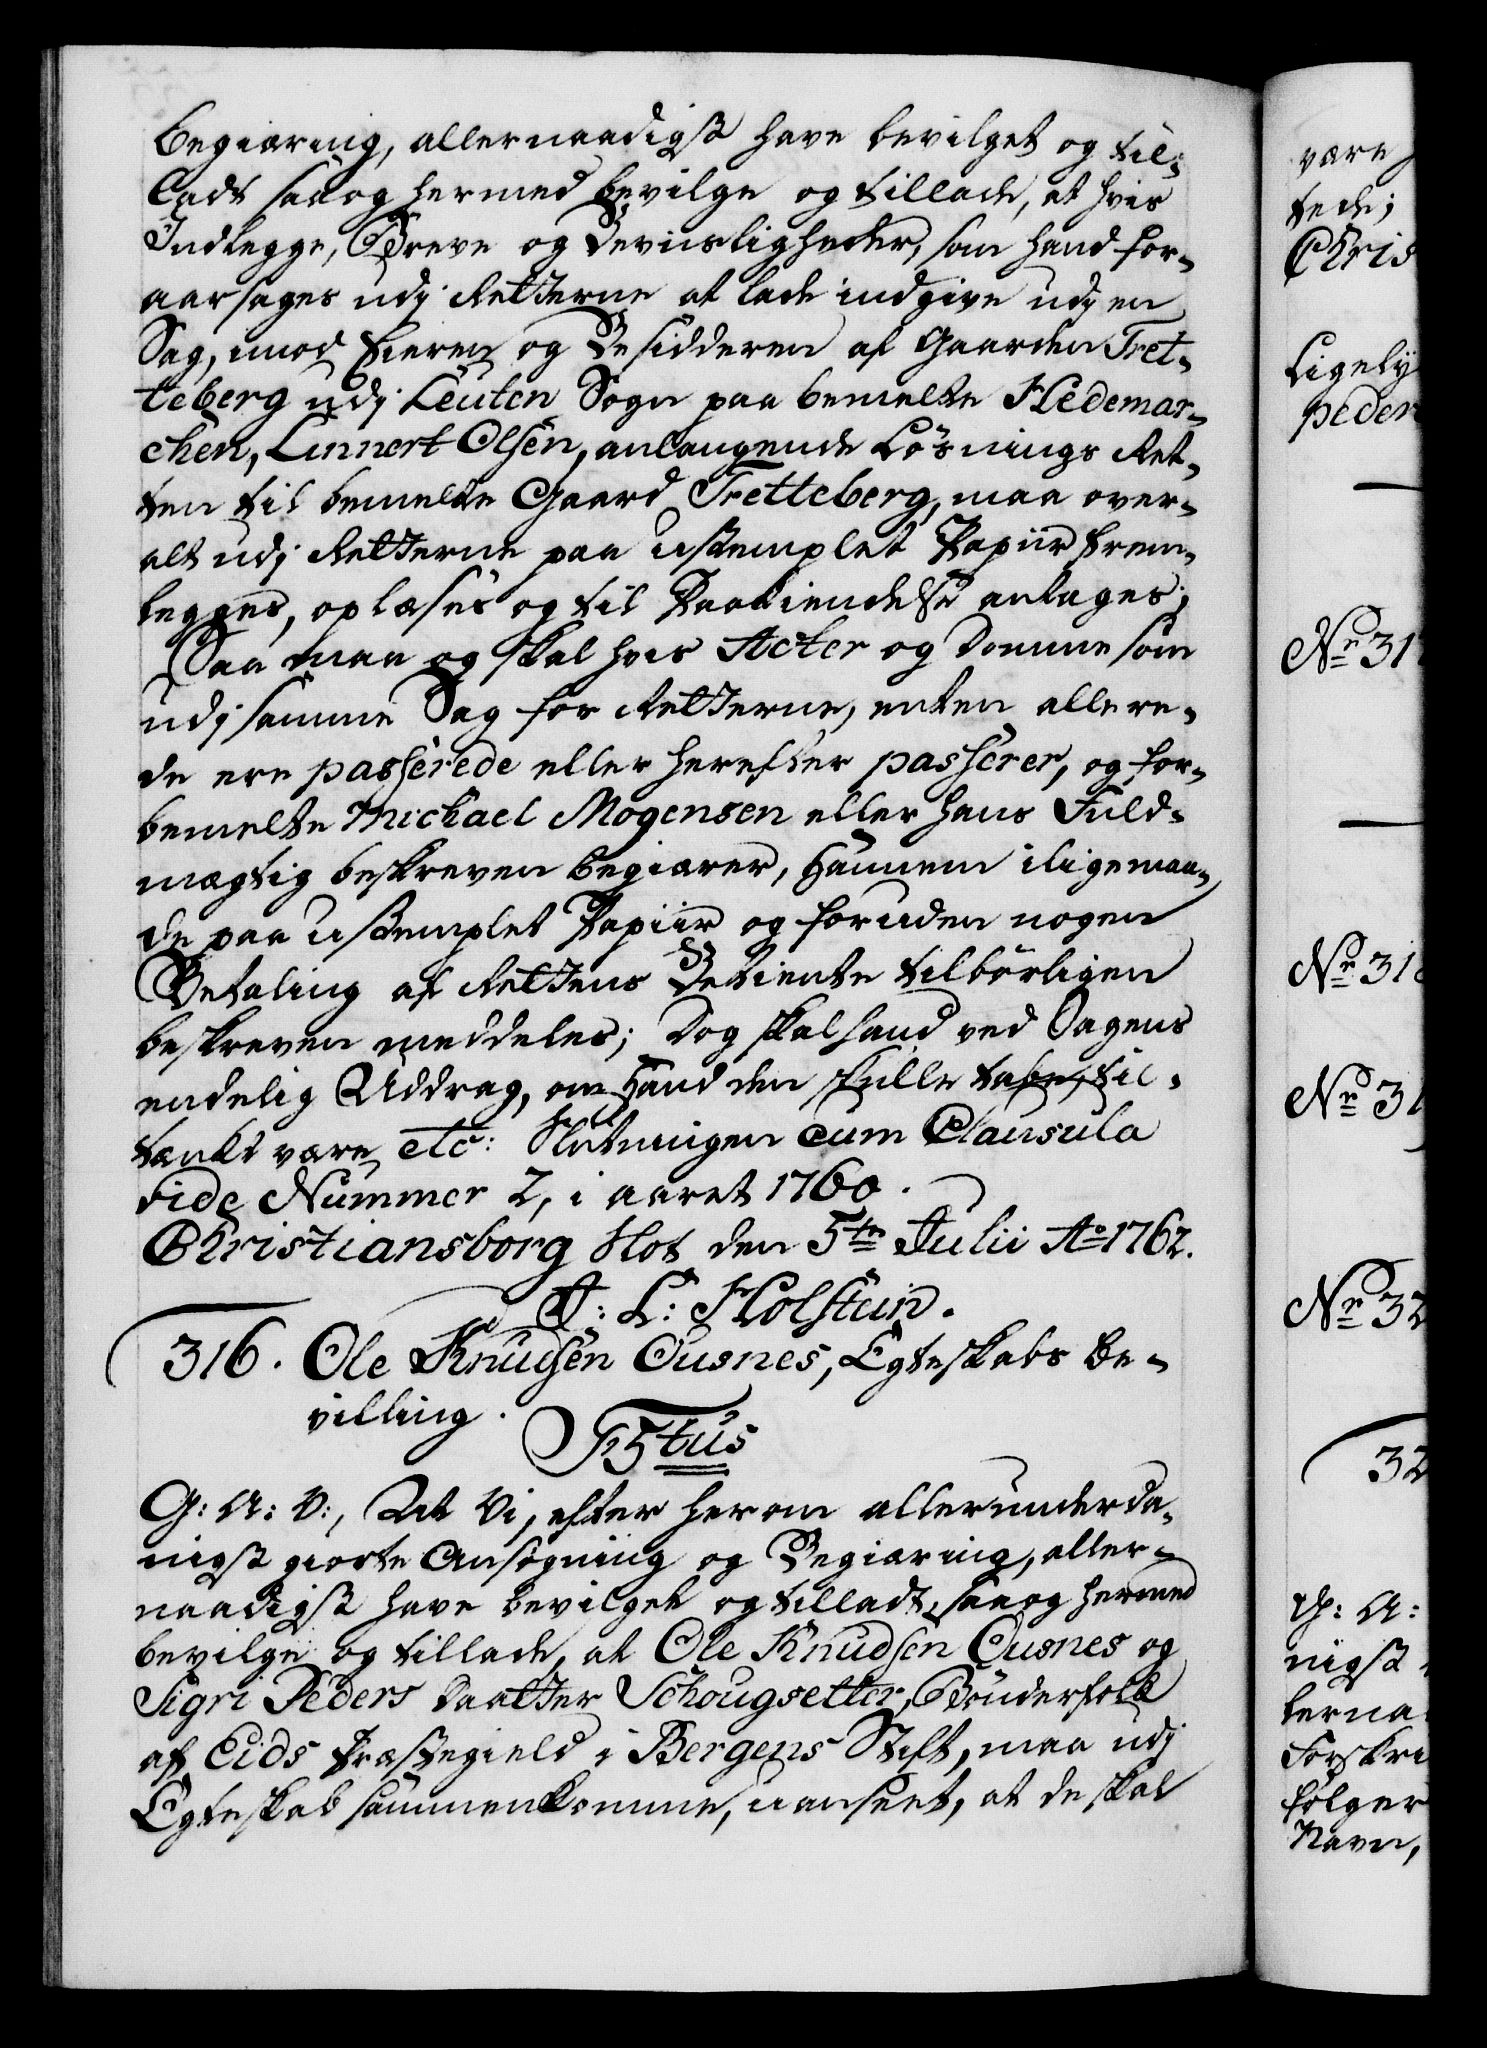 begiæring, allernaadigst have bevilget og til-
ladt saa og hermed bevilge og tillade, at hvis
Indlegge, Breve og Beviisligheder, som hand for-
aarsages udj Retterne at lade indgive udj en
Sag, imod Eieren og Besidderen af Gaarden Tret-
teberg udj Leuten Sogn paa bemelte Hedemar-
chen, Linnert Olsen, anlangende Løsnings Ret-
ten til bemelte Gaard Tretteberg, maa over-
alt udj Retterne paa ustemplet Papiir frem-
legges, oplæses og til Paakiendelse antages;
Saa maa og skal hvis Acter og Domme som
udj samme Sag for Retterne, enten allere-
de ere passerede eller herefter passerer, og for-
bemelte Michael Mogensen eller hans Fuld-
mægtig beskreven begiærer, hannem iligemaa-
de paa ustemplet Papiir og foruden nogen
Betaling af Rettens Betiente tilbørligen
beskreven meddeles; Dog skal hand ved Sagens
endelig Uddrag, om Hand den skulle tabe, til-
tænkt være etc: Slutningen cum Clausula
vide Nummer 2, i aaret 1760.
Christiansborg Slot den 5te Julii Ao 1762.
J: L: Holstein.
316. Ole Knudsen Ousnes, Egteskabs Be-
villing.
F5tus
G: A: V:, At Vi, efter herom allerunderda-
nigst giorte Ansøgning og Begiæring, aller-
naadigst have bevilget og tilladt, saa og hermed
bevilge og tillade, at Ole Knudsen Ousnes og
Sigri Peders Daatter Schougsetter, Bønderfolk
af Eids Præstegield i Bergens Stift, maa udj
Egteskab sammenkomme, uanseet, at de skal
være
tede;
Chris
Ligely
peder
No 317
No 318
No 31
No 32
32
G: A:
nigst
lerna
Forskri
følger
Navn,